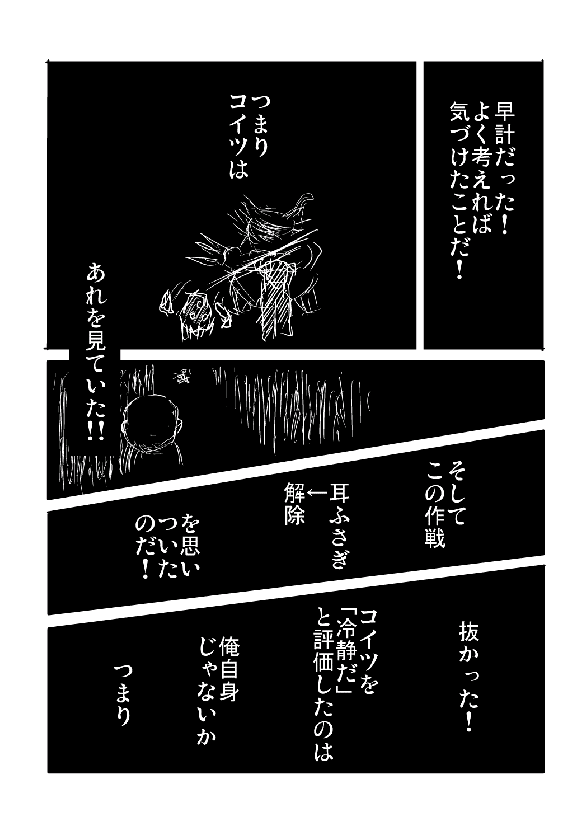 早計だった！
よく考えれば
気づけたことだ！
つまり
コイツは
あれを見ていた!!
そして
この作戦
耳ふさぎ
↓
解除
を思い
ついた
のだ！
抜かった！
コイツを
「冷静だ」
と評価したのは
俺自身
じゃないか
つまり